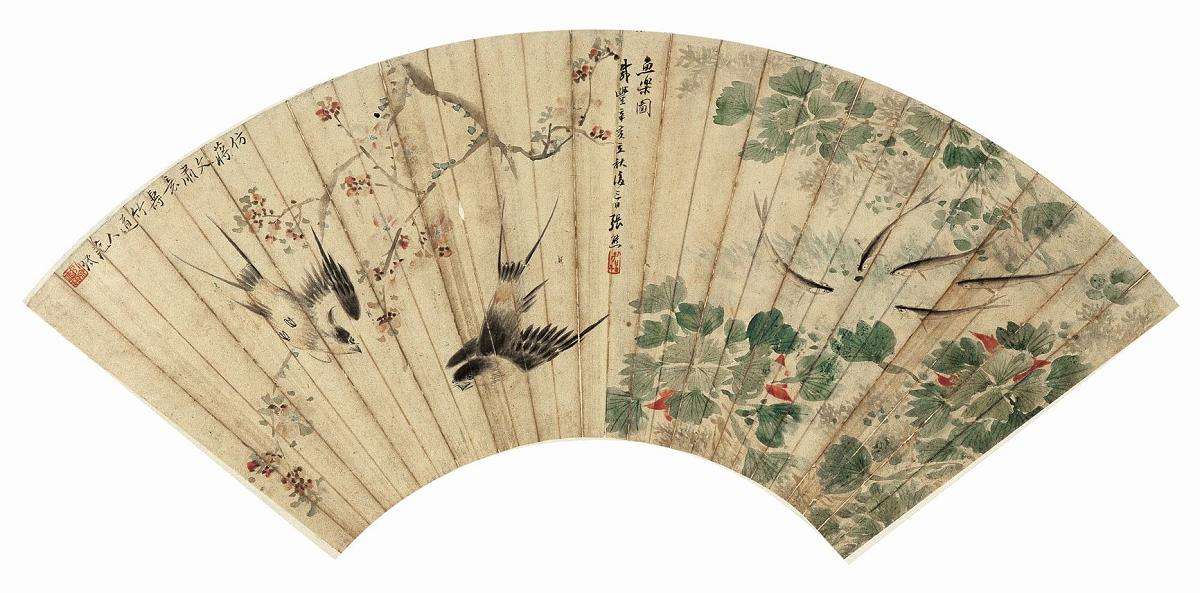 魚樂圖
咸豐辛亥立秋後三日張熊
仿蔣文肅意
竹道人